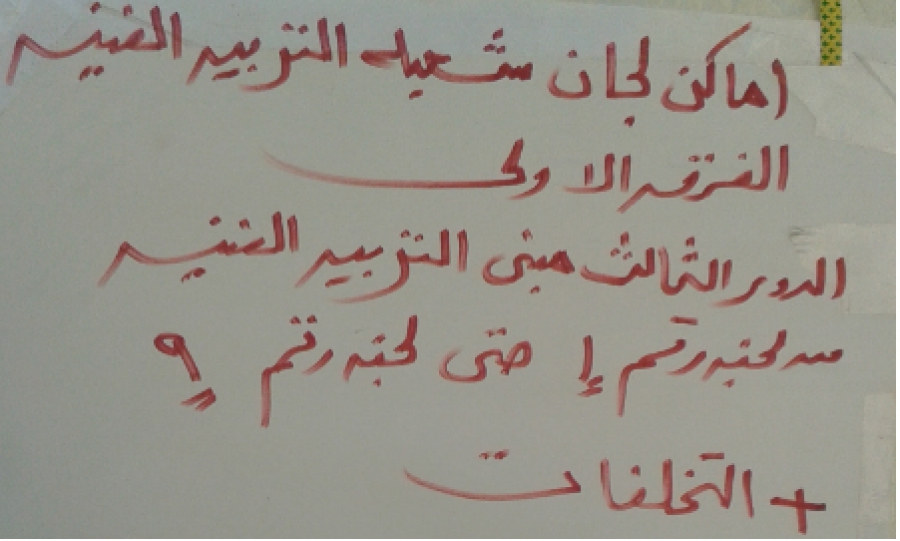 اماكن لجان شعبه التربيه الفنيه
الفرقه الاولى
الدور الثالث مبنى التربيه الفنيه
من لجنه رقم ١ حتى لجنه رقم ٩
+ التخلفات